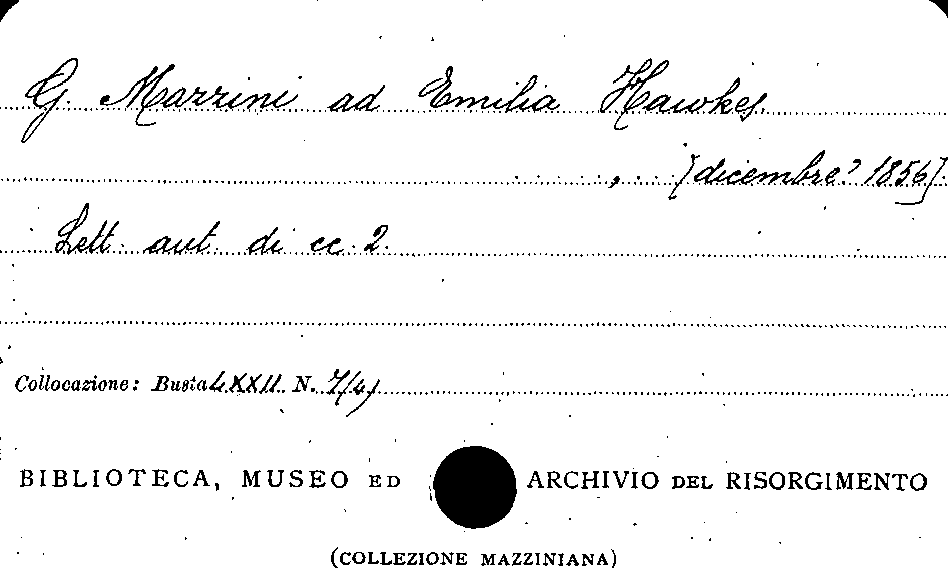 G. Mazzini ad Emilia Hawkes
, [dicembre? 1856].
Lett. aut. di cc. 2.
Collocazione: Busta LXXII N. 7/4)
BIBLIOTECA, MUSEO ED ARCHIVIO DEL RISORGIMENTO
(COLLEZIONE MAZZINIANA)